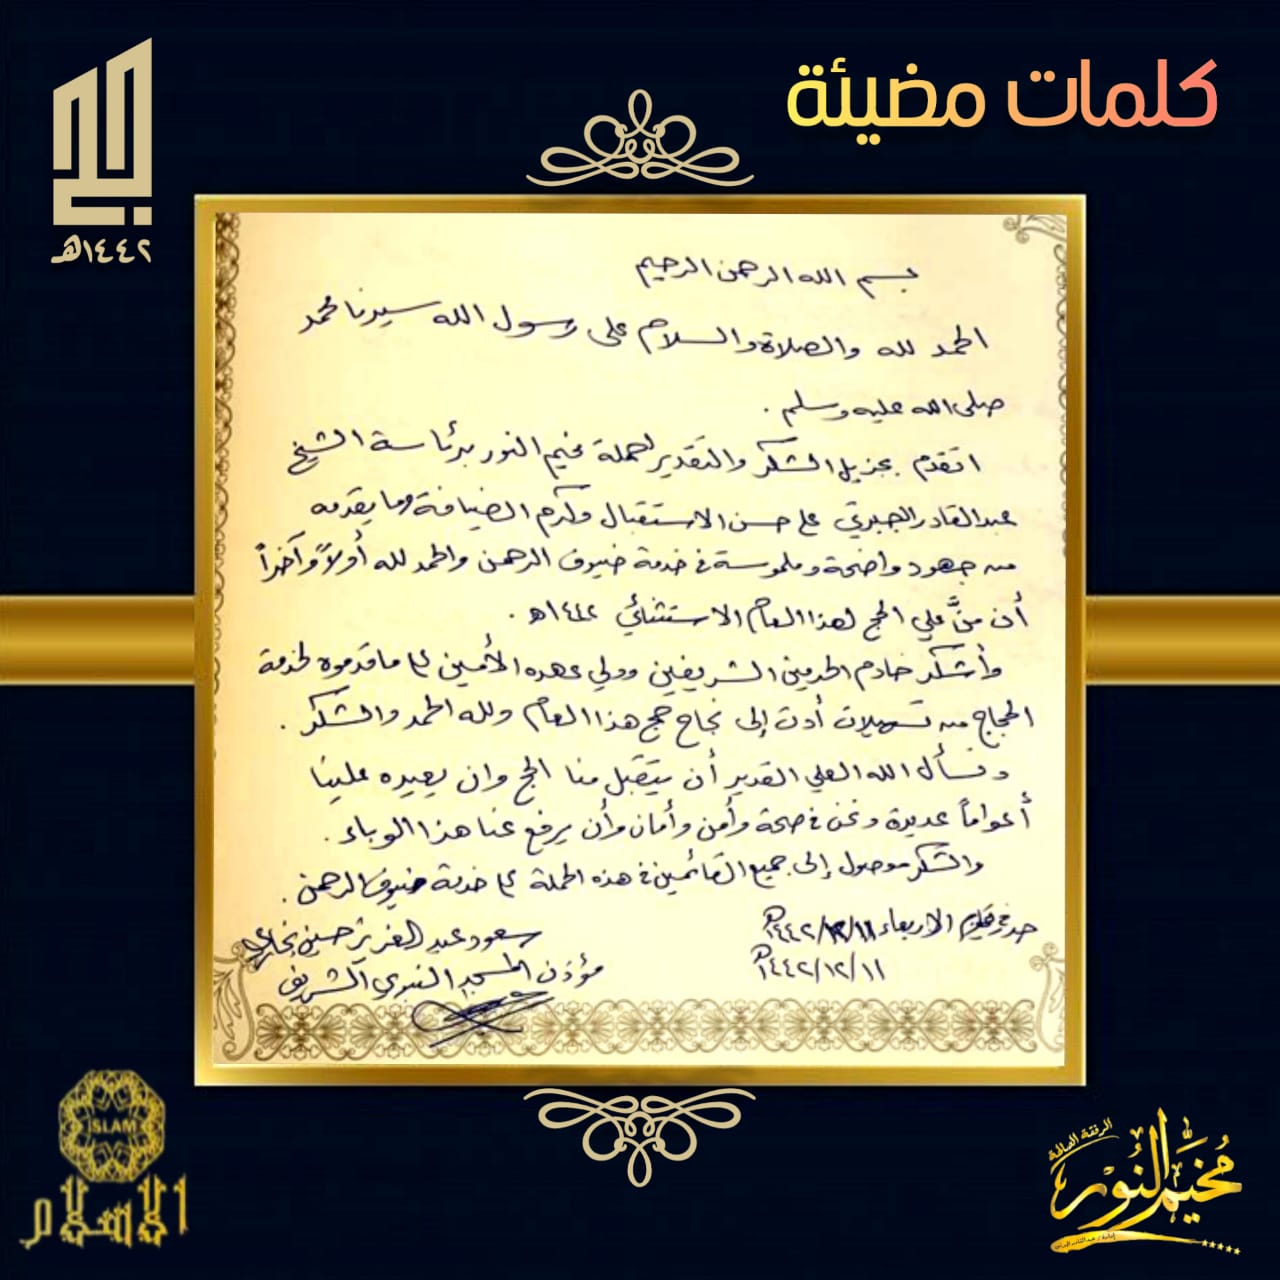 كلمات مضيئة
حج
١٤٤٢هـ
بسم الله الرحمن الرحيم
الحمد لله والصلاة والسلام على رسول الله سيدنا محمد
صلى الله عليه وسلم .
اتقدم بجزيل الشكر والتقدير لحملة مخيم النور برئاسة الشيخ
عبدالقادر الجبرتي على حسن الاستقبال وكرم الضيافة وما يقدمه
من جهود واضحة وملموسة في خدمة ضيوف الرحمن والحمد لله أولاً وآخراً
أن منَّ علي الحج لهذا العام الاستثنائي ١٤٤٢هـ .
وأشكر خادم الحرمين الشريفين وولي عهده الأمين على ما قدموه لخدمة
الحجاج من تسهيلات أدت إلى نجاح حج هذا العام ولله الحمد والشكر .
ونسأل الله العلي القدير أن يتقبل منا الحج وان يعيده علينا
أعواماً عديدة ونحن في صحة وأمن وأمان وأن يرفع عنا هذا الوباء .
والشكر موصول إلى جميع القائمين في هذه الحملة على خدمة ضيوف الرحمن .
الاربعاء ١٤٤٢/١٢/١١هـ
١٤٤٢/١٢/١١هـ
سعود عبدالعزيز حسين بخاري
مؤذن المسجد النبوي الشريف
ISLAM
الاسلام
الرفقة الصالحة
مُخيَّم النُّور